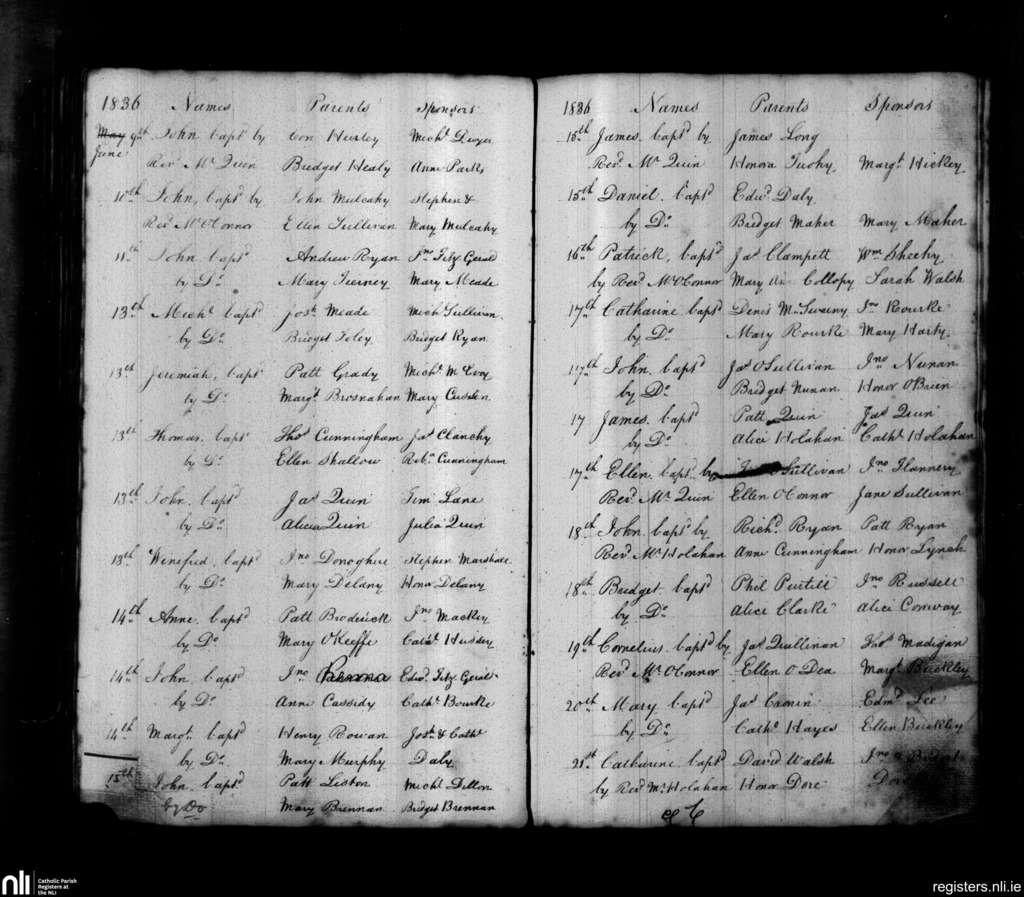 1836 Names Parents Sponsors
May 9th John Capt by Con Hurley Michl Dwyer
June
Revd Mr Quin Bridget Healy Anne Parks
10th John, Capt by John Mulcahy Stephen &
Revd Mr O'Connor Ellen Sullivan Mary Mulcahy
11th John Capd Andrew Ryan Jno Fitz Gerald
by Do Mary Tierney Mary Meade
13th Michl Capd Josh Meade Michl Sullivan
by Do Bridget Foley Bridget Ryan
13th Jeremiah, Capt Patt Grady Michl McEvoy
by Do Margt Brosnahan Mary Cussen
13th Thomas, Capt Thos Cunningham Jas Clanchy
by Do Ellen Shallow Cunningham
13th John, Capd Jas Quin Tim Lane
by Do Alicia Quin Julia Quin
13th Winefred, Capd Jno Donoghue Stephen Marshall
by Do Mary Delany Honor Delany
14th Anne, Capd Patt Broderick Jno Mackey
by Do Mary O'Keeffe Cathe Hussey
14th John, Capd Jno Edwd Fitz Gerald
by Do Anne Cassidy Cathe Bourke
14th Margt Capd Henry Rowan Josh & Cathe
by Do Mary Murphy Daly
15th John, Capd Patt Liston Michl Dillon
by Do Mary Brennan Bridget Brennan
1836 Names Parents Sponsors
15th James, Capd by James Long
Revd Mr Quin Honora Tuohy Margt Hickey
15th Daniel, Capd Edwd Daly
by Do Bridget Maher Mary Maher
16th Patrick, Capd Jas Clampett Wm Sheehy
by Revd Mr O'Connor Mary An Collopy Sarah Walsh
17th Catharine Capd Denis McSwiny Jno Rourke
by Do Mary Rourke Mary Harty
17th John, Capd Jas O'Sullivan Jno Nunan
by Do Bridget Nunan Honor O'Brien
17 James, Capd Patt Quin Jas Quin
by Do Alice Holahan Cathe Holahan
17th Ellen, Capd by O'Sullivan Jno Flannery
Revd Mr Quin Ellen O'Connor Jane Sullivan
18th John, Capd by Richd Ryan Patt Ryan
Revd Mr Holahan Anne Cunningham Honor Lynch
18th Bridget Capd Phil Purtill Jno Russell
by Do Alice Clarke Alice Conway
19th Cornelius, Capd by Jas Sullivan Thos Madigan
Revd Mr O'Connor Ellen O Dea Margt Buckley
20th Mary Capd Jas Cronin Edmd Lee
by Do Cathe Hayes Ellen Buckley
21st Catharine Capd David Walsh Jno & Bridget
by Revd Mr Holahan Honor Dore Dore
nli Catholic Parish
Registers at
the NLI
registers.nli.ie